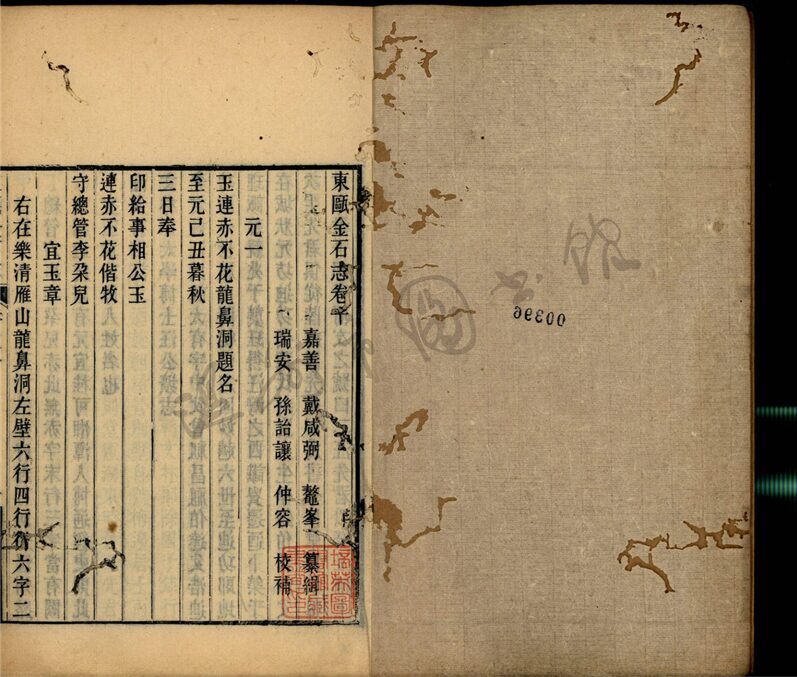 東甌金石志卷十
嘉善 戴咸弼 鼇峯 纂緝
瑞安 孫詒讓 仲容 校補
元一
玉連赤不花龍鼻洞題名
至元己丑暮秋
三日奉
印給事相公玉
連赤不花偕牧
守總管李朶兒
宜玉章
右在樂清雁山龍鼻洞左壁六行四行行六字二
00396